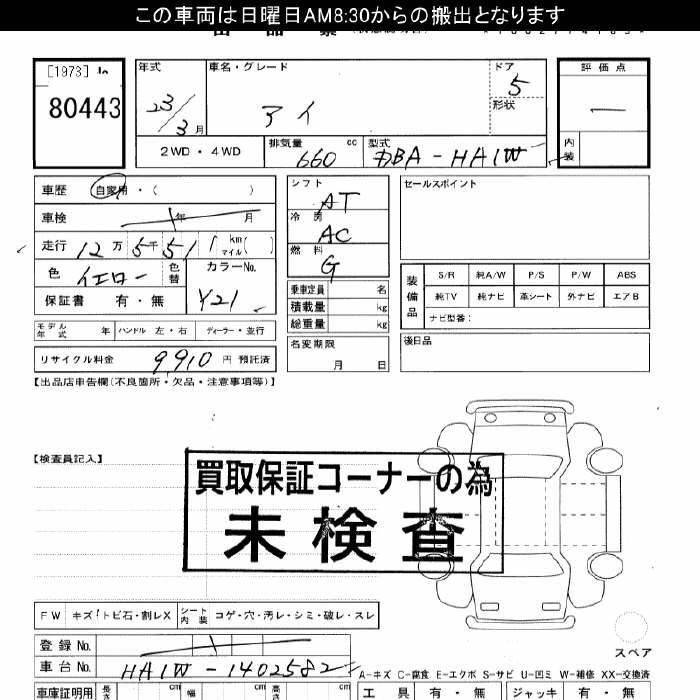 この車両は日曜日AM8:30からの搬出となります
[1973]
80443
年式
23/3月
車名・グレード
アイ
ドア
5
形状
評価点
—
内装
2WD・4WD
排気量
660 cc
型式
DBA-HA1W
車歴 自家用・( )
車検 年 月
走行 12万5千51 km マイル( )
色 イエロー
色替
カラーNo.
Y21
保証書 有・無
シフト
AT
冷房
AC
燃料
G
乗車定員 名
積載量 kg
総重量 kg
セールスポイント
装備品
S/R 純A/W P/S P/W ABS
純TV 純ナビ 革シート 外ナビ エアB
ナビ型番:
モデル年式 年 ハンドル 左・右 ディーラー・並行
リサイクル料金 9910 円 預託済
名変期限
月 日
後日品
【出品店申告欄(不良箇所・欠品・注意事項等)】
【検査員記入】
買取保証コーナーの為
未検査
FW キズ!トビ石・割レX シート内装 コゲ・穴・汚レ・シミ・破レ・スレ
スペア
登録No.
車台No. HA1W-1402582
A-キズ C-腐食 E-エクボ S-サビ U-凹ミ W-補修 XX-交換済
車庫証明用 長さ cm 幅 cm 高さ cm
工具 有・無 ジャッキ 有・無